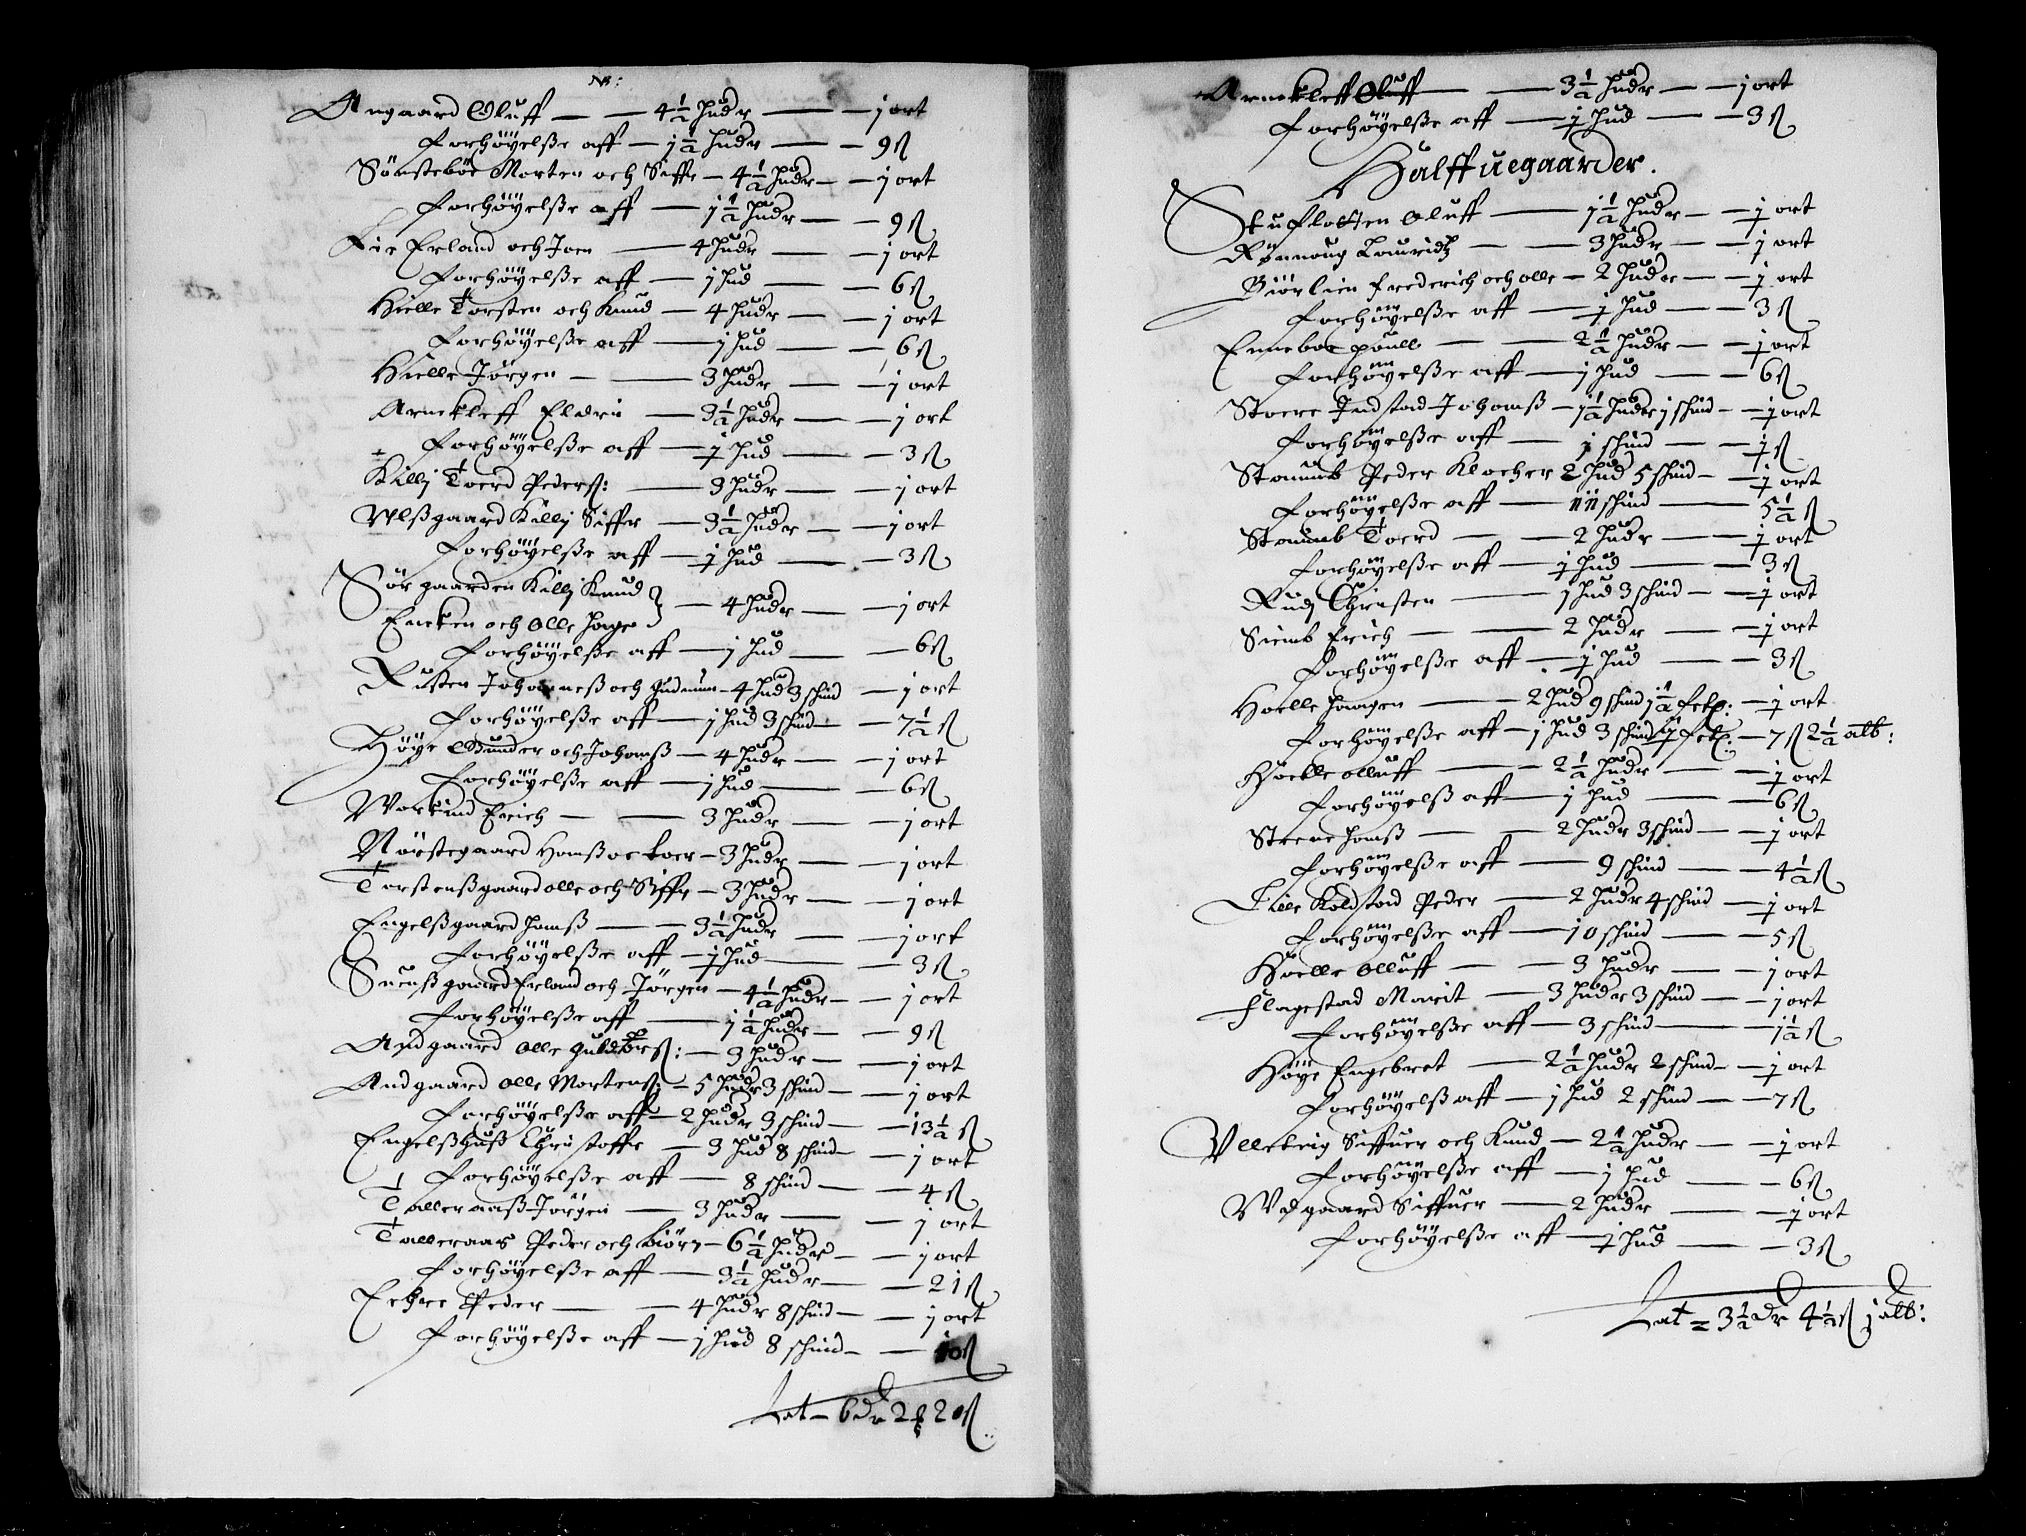 NB:
Angaard Oluff — — 4½ hudr — — j ort
forhöyelße aff — j½ hudr — — 9ß
Sönsteböe Morten och Siffr — 4½ hudr — — j ort
forhöyelße aff — j½ hudr — — 9ß
Lie Erland och Joen — 4 hudr — — j ort
forhöyelße aff — j hud — — 6ß
Hielle Torsten och Knud — 4 hudr — — j ort
forhöyelße aff — j hud — — 6ß
Hielle Jörgen — — 3 hudr — — j ort
Arnekleff Eldrii — 3½ hudr — — j ort
forhöyelße aff — ɉ hud — — 3ß
Killj Toerd Pederß: — 3 hudr — — j ort
Ulßgaard Killj Siffr — 3½ hudr — — j ort
forhöyelße aff — ɉ hud — — 3ß
Sörgaarden Killj Knud }
Encken och Olle hage } — 4 hudr — — j ort
forhöyelße aff — j hud — — 6ß
Rusten Johanneß och Gudmun — 4 hud 3 schind — j ort
forhöyelße aff — j hud 3 schind — — 7½ ß
Höye Gunder och Johanß — 4 hudr — — j ort
forhöyelße aff — j hud — — 6ß
Workind Erich — — 3 hudr — — j ort
Nörstegaard Hanß oc Toer — 3 hudr — — j ort
Torstenßgaard olle och Siffr — 3 hudr — — j ort
Engelßgaard hanß — — 3½ hudr — — j ort
forhöyelße aff — ɉ hud — — 3ß
Suenßgaard Erland och Jörgen — 4½ hudr — — j ort
forhöyelße aff — j½ hudr — — 9ß
Andgaard Olle Guldbrß: — 3 hudr — — j ort
Andgaard Olle Mortenß: — 5 hudr 3 schind — — j ort
forhöyelße aff — 2 hudr 3 schind — — 13½ ß
Engelßhuß Christoffr — 3 hud 8 schind — — j ort
forhöyelße aff — 8 schind — — 4ß
Talleraaß Jörgen — 3 hudr — — j ort
Talleraas Peder och Biörn — 6½ hudr — — j ort
forhöyelße aff — 3½ hudr — — 21ß
Echre Peder — — 4 hudr 8 schind — — j ort
forhöyelße aff — j hud 8 schind — — 10ß
Lat — 6 dr 2 ort 20ß
Arnekleff Oluff — — 3½ hudr — — j ort
forhöyelße aff — ɉ hud — — 3ß
Halffuegaarder.
Stufloten Oluff — j½ hudr — — ɉ ort
Rönnoug Lauridtz — — 3 hudr — — ɉ ort
Biörlien frederich och olle — 2 hudr — — ɉ ort
forhöyelße aff — ɉ hud — — 3ß
Enneboe poull — — 2½ hudr — — ɉ ort
forhöyelße aff — j hud — — 6ß
Stoere Indstad Johanß — j½ hudr j schind — — ɉ ort
forhöyelße aff — j schind — — ɉß
Staumb Peder Klocher 2 hud 5 schind — — ɉ ort
forhöyelße aff — 11 schind — — 5½ ß
Staumb Toerd — — 2 hudr — — ɉ ort
forhöyelße aff — ɉ hud — — 3ß
Rudj Christen — j hud 3 schind — — ɉ ort
Siemb Erich — — 2 hudr — — ɉ ort
forhöyelße aff — ɉ hud — — 3ß
Hoelle haagen — 2 hud 9 schind j½ fetz: — ɉ ort
forhöyelße aff — j hud 3 schind ɉ fetz: — 7ß 2½ alb:
Hoelle olluff — 2½ hudr — — ɉ ort
forhöyelß aff — j hud — — 6ß
Steene hanß — — 2 hudr 3 schind — — ɉ ort
forhöyelße aff — 9 schind — — 4½ ß
Lille Kolstad Peder — 2 hudr 4 schind — ɉ ort
forhöyelße aff — 10 schind — — 5ß
Hoelle Olluff — — 3 hudr — — j ort
Flagestad Marit — 3 hudr 3 schind — — j ort
forhöyelße aff — 3 schind — — 1½ ß
Höye Engebret — 2½ hudr 2 schind — — ɉ ort
forhöyelß aff — j hud 2 schind — — 7ß
Ulleberig Siffuer och Knud — 2½ hudr — — ɉ ort
forhöyelße aff — j hud — — 6ß
Wdgaard Siffuer — 2 hudr — — ɉ ort
forhöyelße aff — ɉ hud — — 3ß
Lat = 3½ dr 4½ ß j alb: